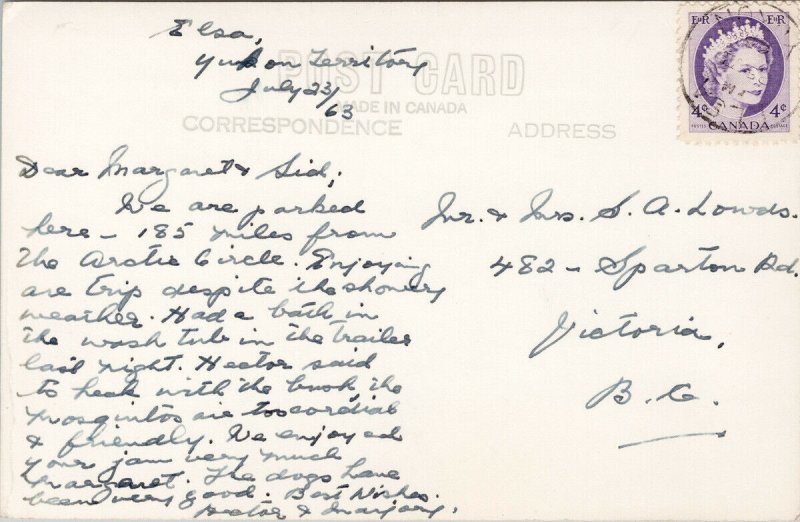 Elsa,
Yukon Territory
July 23/63
POST CARD
MADE IN CANADA
CORRESPONDENCE
ADDRESS
E II R
E II R
4¢
4¢
POSTES
CANADA
POSTAGE
Dear Margaret & Sid,
We are parked
here – 185 miles from
the Arctic Circle. Enjoying
are trip despite the showery
weather. Had a bath in
the wash tub in the trailer
last night. Hector said
to heck with the bush, the
mosquitos are too cordial
& friendly. We enjoyed
your jam very much
Margaret. The dogs have
been very good. Best Wishes.
Hector & Marjory.
Mr. & Mrs. S. A. Lowds.
482 – Sparton Rd.
Victoria,
B.C.